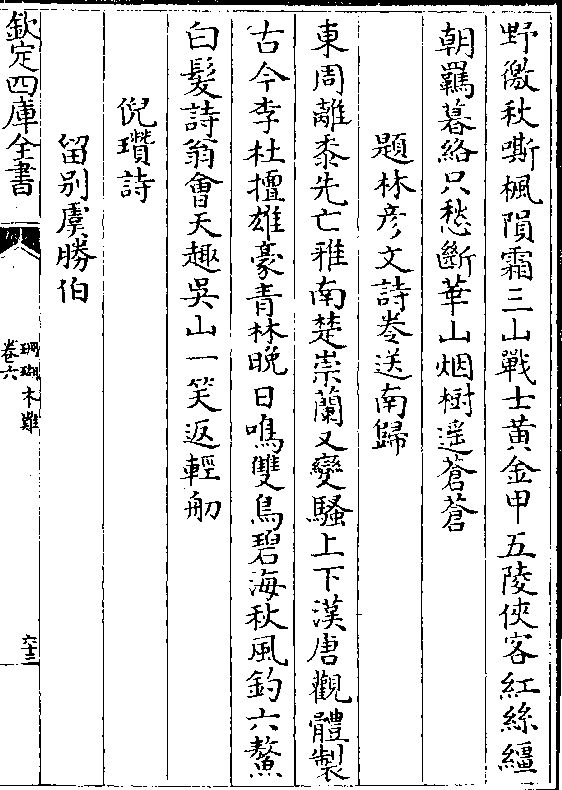 野徼秋嘶楓隕霜三山戰士黄金甲五陵俠客紅絲繮
朝羈暮絡只愁斷華山烟樹遥蒼蒼
題林彦文詩卷送南歸
東周離黍先亡雅南楚崇蘭又變騷上下漢唐觀體製
古今李杜擅雄豪青林晚日鳴雙鳥碧海秋風釣六鰲
白髮詩翁會天趣吳山一笑返輕舠
倪瓚詩
留别虞勝伯
欽定四庫全書
珊瑚木難
卷六
六十三